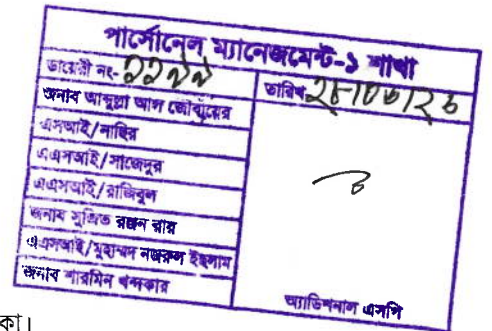 পার্সোনেল ম্যানেজমেন্ট-১ শাখা
ডায়েরী নং- ২২৯৯
তারিখ
জনাব আব্দুল্লা আল জোবায়ের
এসআই/নাহির
এএসআই/সাজেদুর
এএসআই/রাজিবুল
জনাব সুজিত রঞ্জন রায়
এএসআই/মুহাম্মদ নজরুল ইছলাম
জনাব শারমিন খন্দকার
অ্যাডিশনাল এসপি
কা।